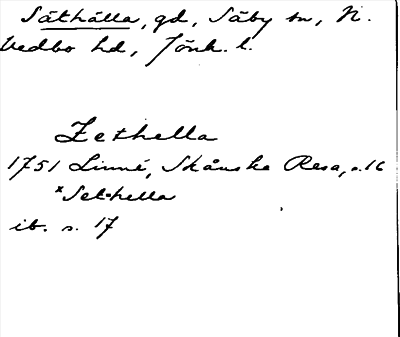 Säthälla, gd, Säby sn, N.
Vedbo hd, Jönk. l.
Zethella
1751 Linné, Skånska Resa, s. 16
×Sethella
ib. s. 17